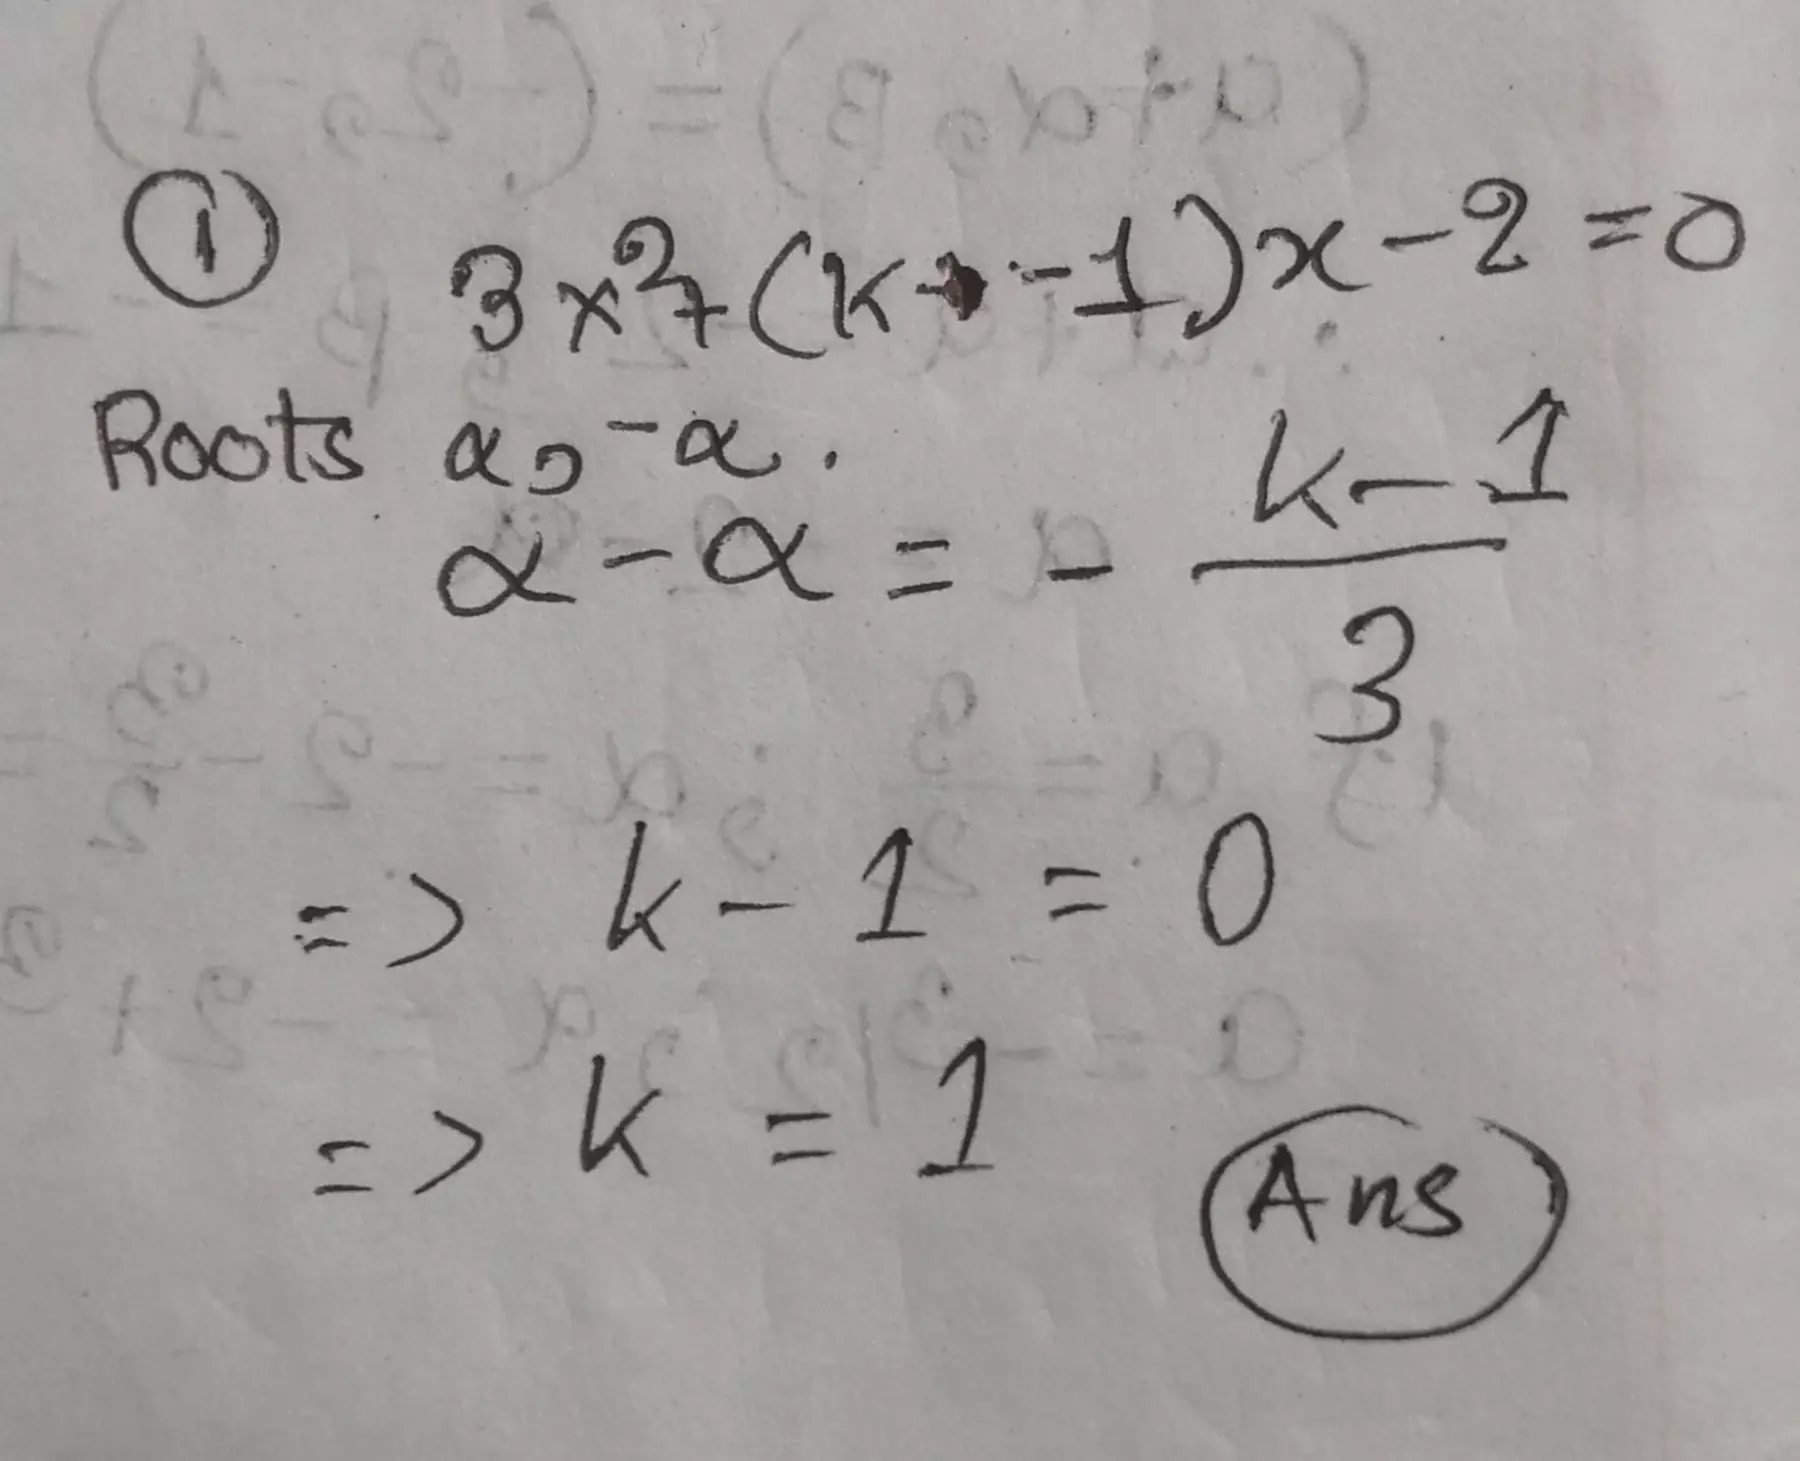 ① 3x²+(k-1)x-2=0
Roots α, -α.
α-α = - (k-1)/3
=> k-1 = 0
=> k = 1
Ans